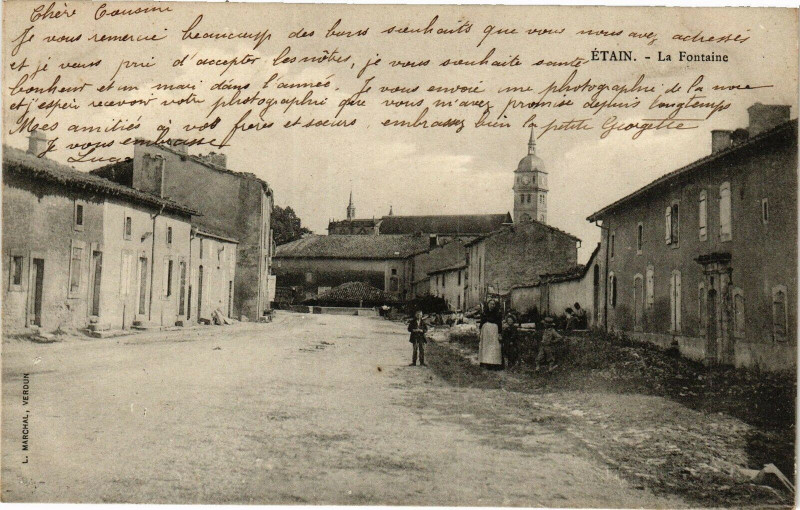 Chère Cousine
Je vous remercie beaucoup des bons souhaits que vous nous avez adressés
et je vous prie d'accepter les nôtres, je vous souhaite santé
bonheur et un mari dans l'année. Je vous envoie une photographie de la noce
et j'espère recevoir votre photographie que vous m'avez promise depuis longtemps
Mes amitiés à vos frères et sœurs embrassez bien la petite Georgette
Je vous embrasse
ÉTAIN. - La Fontaine
L. MARCHAL, VERDUN